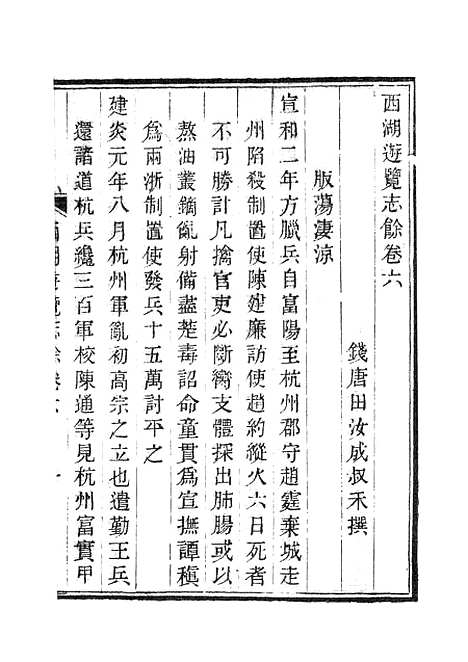 西湖遊覽志餘卷六
錢唐田汝成叔禾撰
版蕩淒涼
宣和二年方臘兵自富陽至杭州郡守趙霆棄城走
州陷殺制置使陳建廉訪使趙約縱火六日死者
不可勝計凡擒官吏必斷臠支體探出肺腸或以
熬油叢鏑亂射備盡楚毒詔命童貫爲宣撫譚稹
爲兩浙制置使發兵十五萬討平之
建炎元年八月杭州軍亂初高宗之立也遣勤王兵
還諸道杭兵纔三百軍校陳通等見杭州富實甲